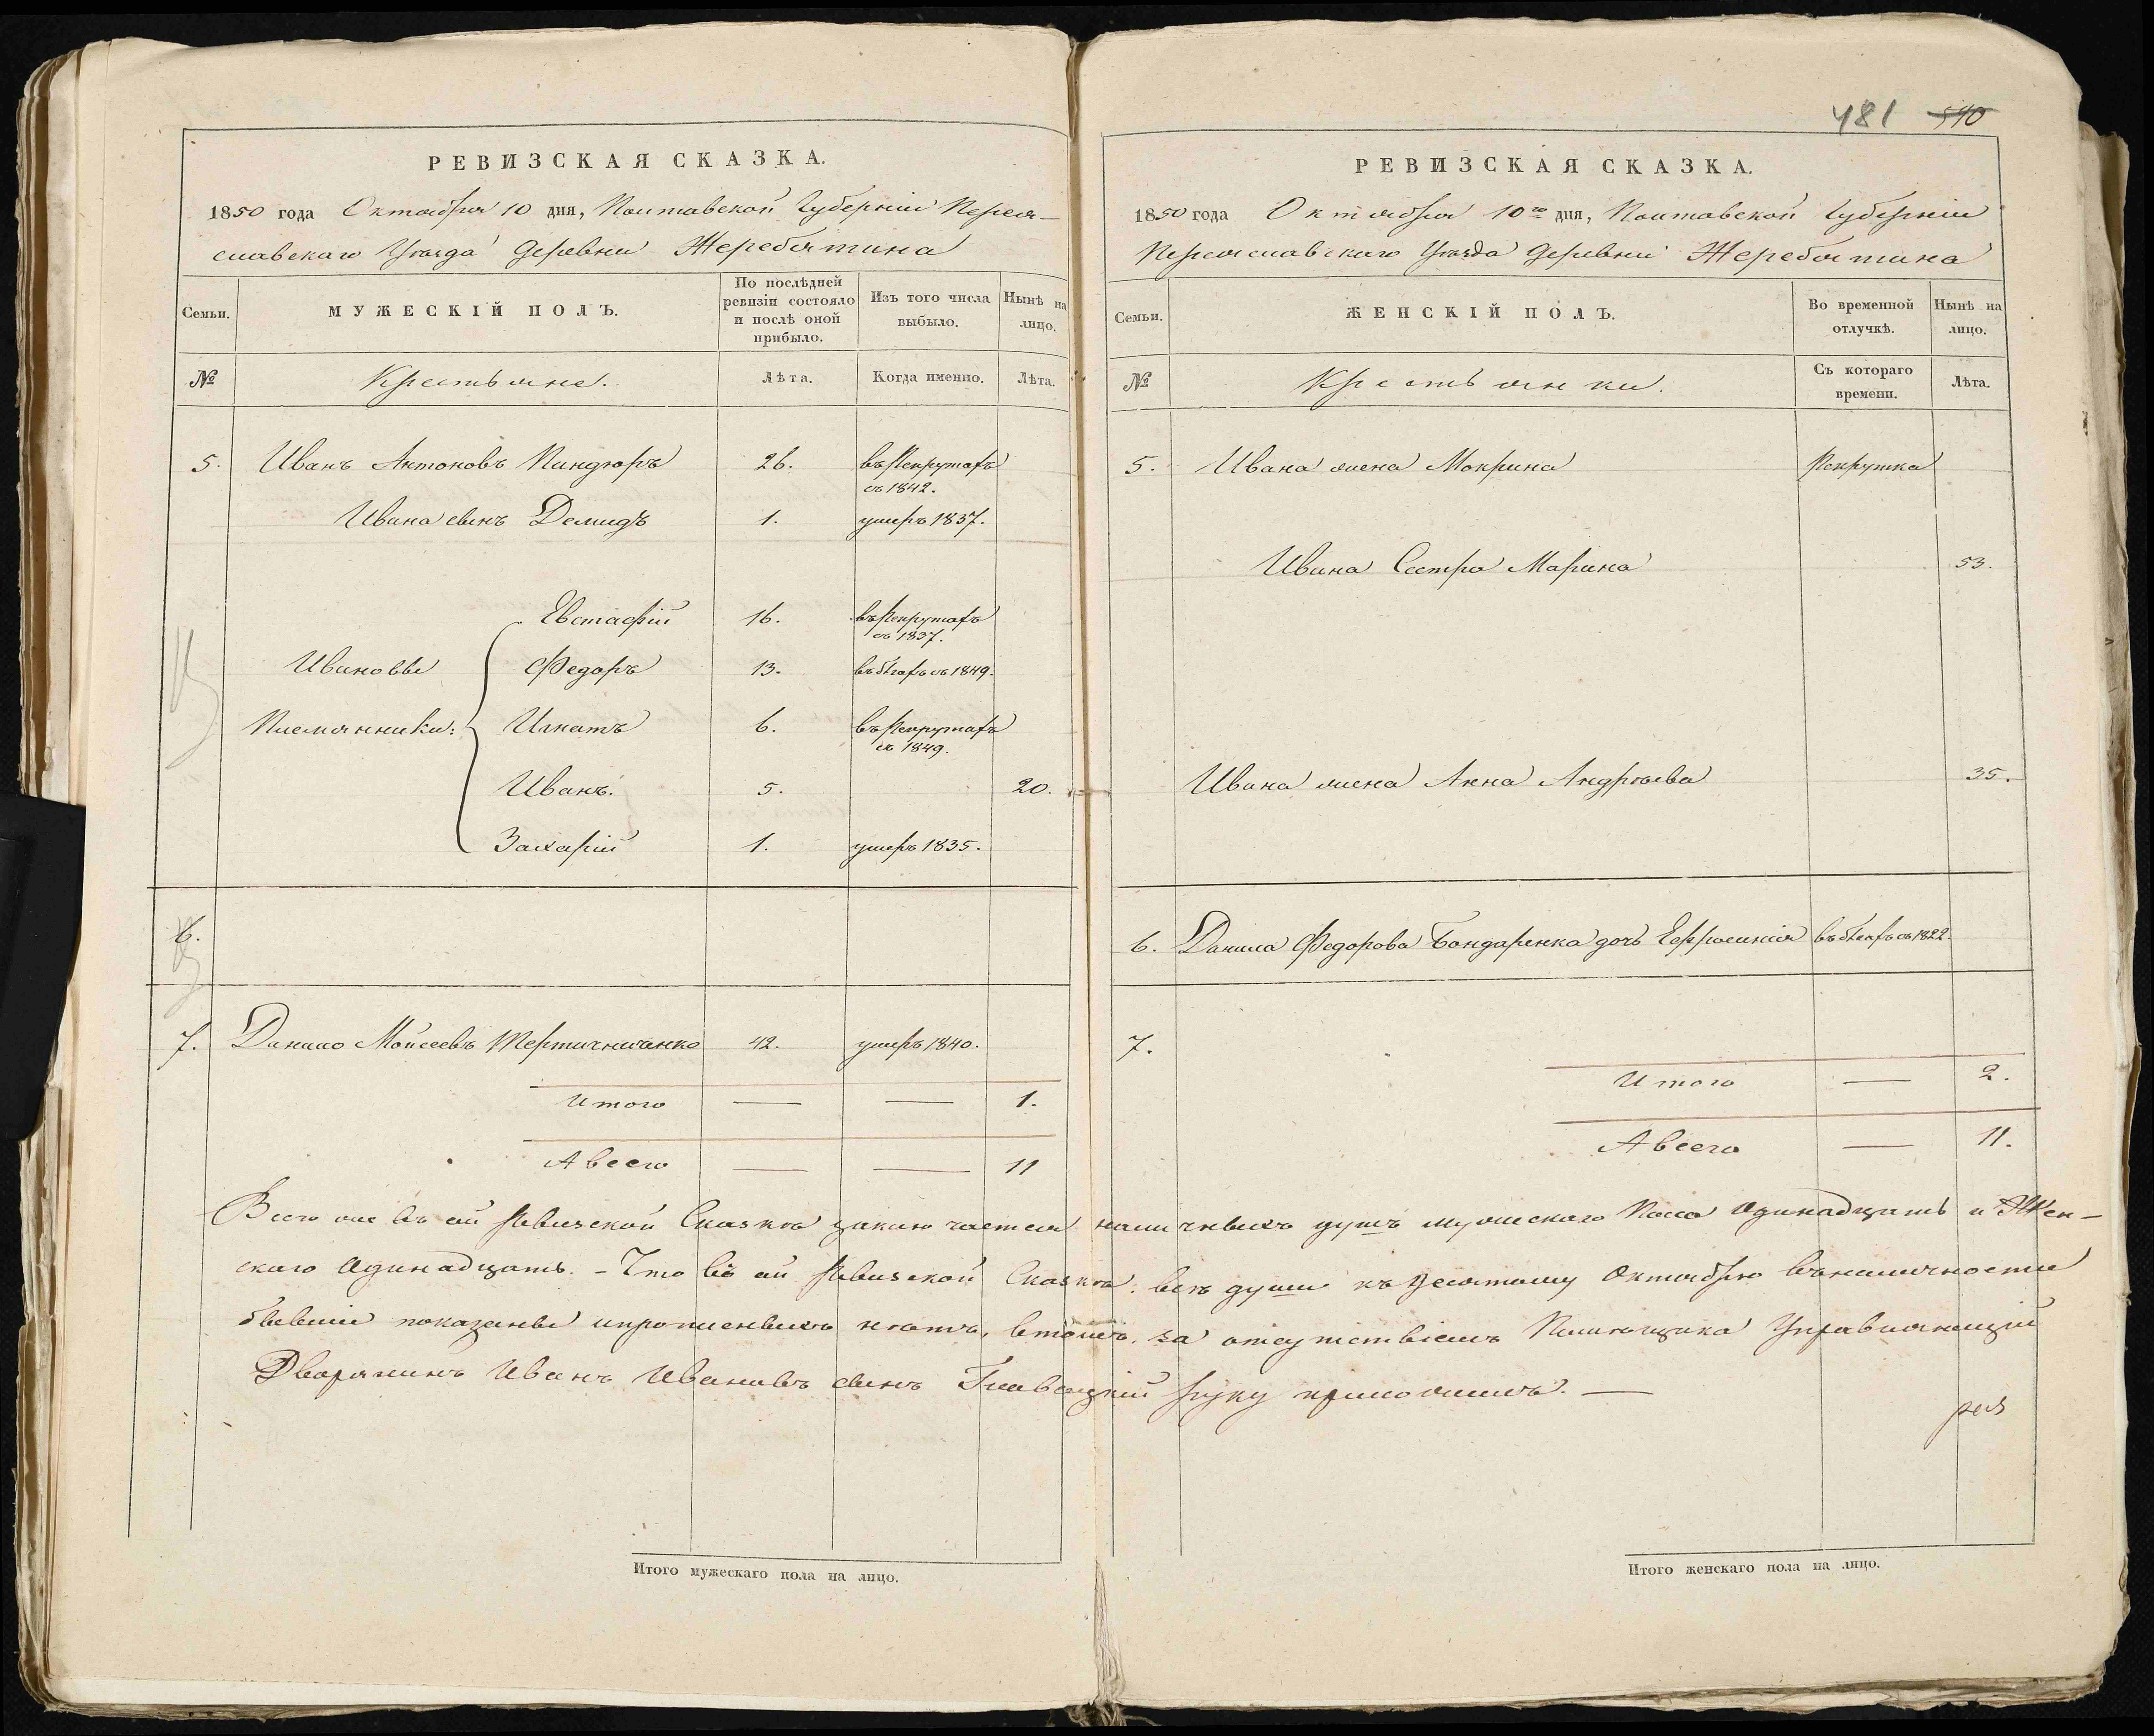 РЕВИЗСКАЯ СКАЗКА.
1850 года Октября 10 дня, Полтавской Губерніи Перея-
славскаго Уѣзда Деревни Жеребятина
Семьи.
МУЖЕСКІЙ ПОЛЪ.
По послѣдней ревизіи состояло и послѣ оной прибыло.
Изъ того числа выбыло.
Нынѣ на лицо.
№
Крестьяне.
Лѣта.
Когда именно.
Лѣта.
5. Иванъ Антоновъ Пиндюръ 26. въ Рекрутахъ
съ 1842.
Ивана сынъ Демидъ 1. умеръ 1837.
Евстафій 16. въ Рекрутахъ
съ 1837.
Ивановы Федоръ 13. въ бѣгахъ съ 1849.
Племянники: Игнатъ 6. въ Рекрутахъ
съ 1849.
Иванъ. 5. 20.
Захарій 1. умеръ 1835.
6.
7. Данило Мойсеевъ Тертичниченко 42. умеръ 1840.
Итого — — 1.
А всего — — 11
481 510
РЕВИЗСКАЯ СКАЗКА.
1850 года Октября 10го дня, Полтавской Губерніи
Переяславскаго Уѣзда Деревни Жеребятина
Семьи.
ЖЕНСКІЙ ПОЛЪ.
Во временной отлучкѣ.
Нынѣ на лицо.
№
Крестьянки.
Съ котораго времени.
Лѣта.
5. Ивана жена Мокрина Рекрутка
Ивана Сестра Марина 53.
Ивана жена Анна Андрѣева 35.
6. Данила Федорова Бондаренка дочь Ефросинія въ бѣгахъ съ 1822.
7.
Итого — 2.
А всего — 11.
Всего же въ сей Ревизской Сказкѣ заключается наличныхъ душъ мужескаго Пола Одинадцать и Жен-
скаго Одинадцать. - Что въ сей Ревизской Сказкѣ всѣ души къ десятому Октябрю въ наличности
бывшіе показаны и прописныхъ нѣтъ, въ томъ, за отсутствіемъ Помѣщика Управляющій
Дворянинъ Иванъ Ивановъ сынъ руку приложилъ. —
Итого мужескаго пола на лицо.
Итого женскаго пола на лицо.